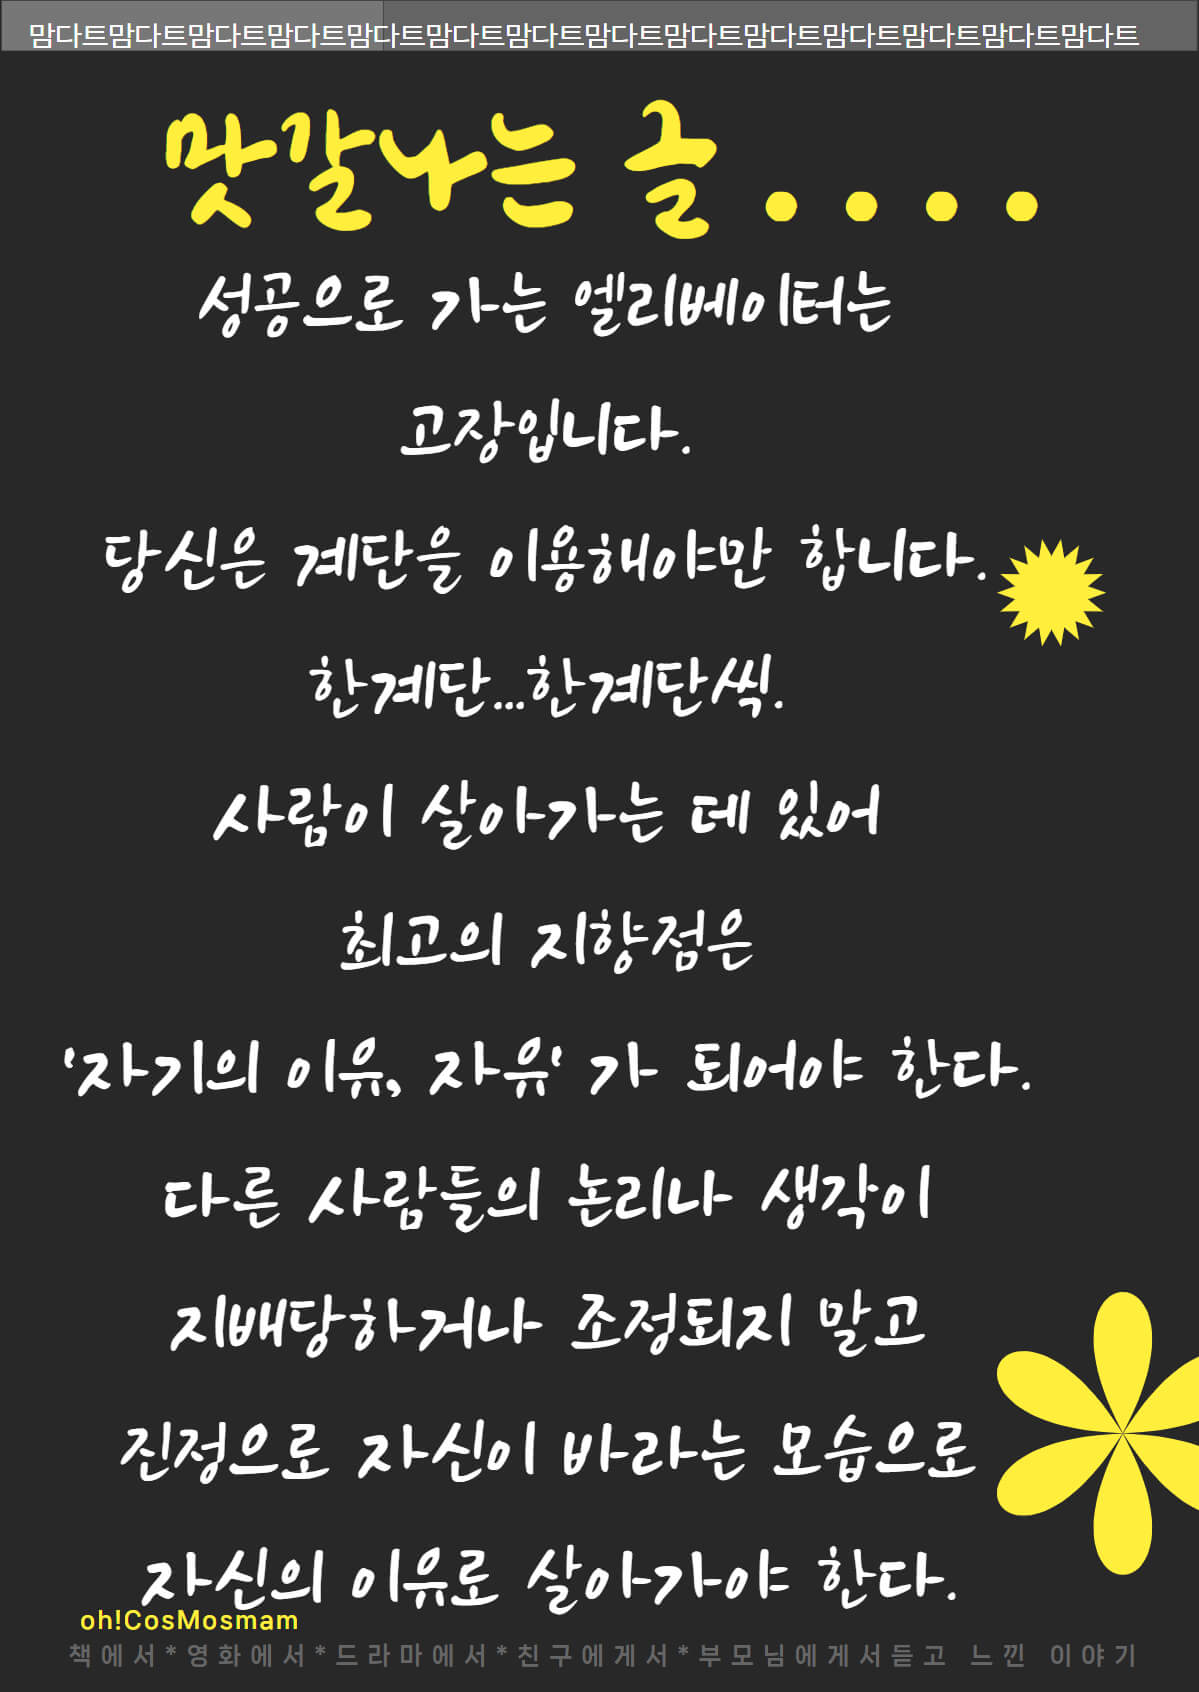 맘다트맘다트맘다트맘다트맘다트맘다트맘다트맘다트맘다트맘다트맘다트맘다트맘다트맘다트
맛갈나는 글 . . . .
성공으로 가는 엘리베이터는
고장입니다.
당신은 계단을 이용해야만 합니다.
한계단...한계단씩.
사람이 살아가는 데 있어
최고의 지향점은
'자기의 이유, 자유' 가 되어야 한다.
다른 사람들의 논리나 생각이
지배당하거나 조정되지 말고
진정으로 자신이 바라는 모습으로
자신의 이유로 살아가야 한다.
oh!CosMosmam
책에서*영화에서*드라마에서*친구에게서*부모님에게서듣고 느낀 이야기